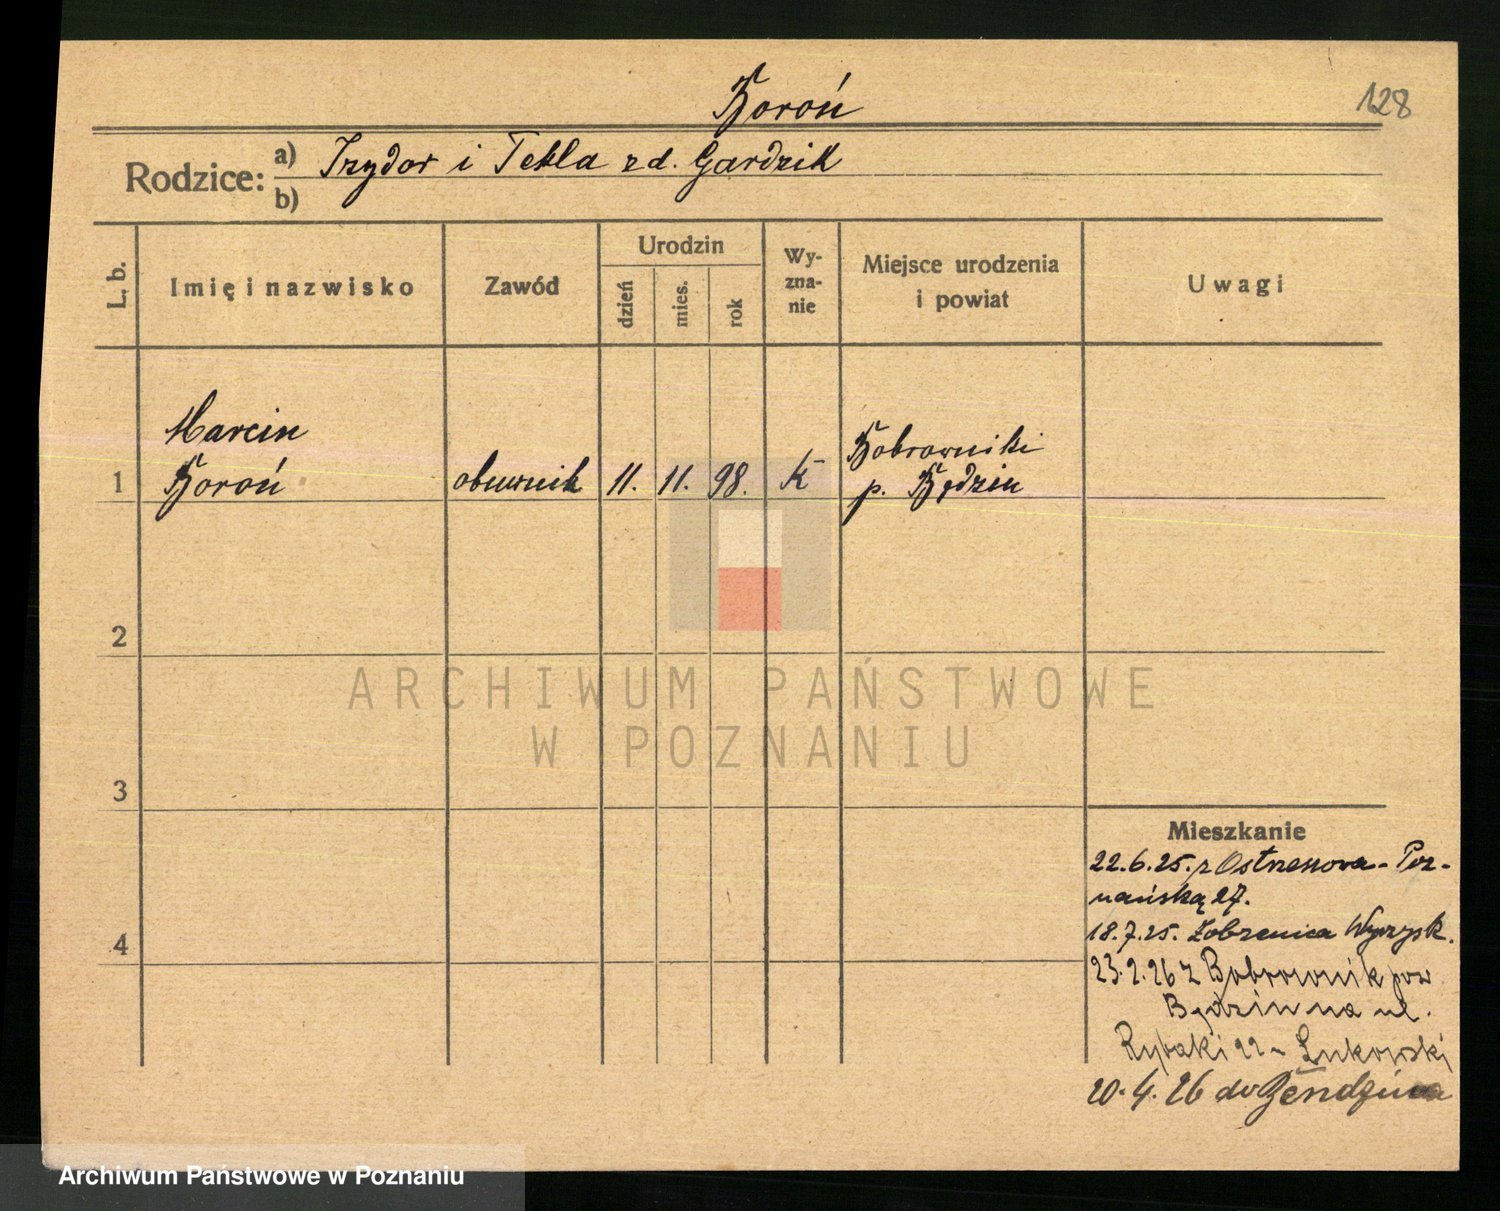 Boroń
128
Rodzice:
a) Izydor i Tekla z d. Gardzik
b)
L. b.
Imię i nazwisko
Zawód
Urodzin
dzień
mies.
rok
Wy-
zna-
nie
Miejsce urodzenia
i powiat
Uwagi
1
Marcin
Boroń
obuwnik
11.
11.
98.
K
Bobrowniki
p. Będzin
2
3
4
Mieszkanie
22.6.25. z Ostrzeszowa - Poz-
nańska 27.
18.7.25. Łobżenica Wyrzysk.
23.2.26 z Bobrownik pow
Będzin na ul.
Rybaki 22 - Łukowski
20.4.26 do Bendzina
ARCHIWUM PAŃSTWOWE
W POZNANIU
Archiwum Państwowe w Poznaniu